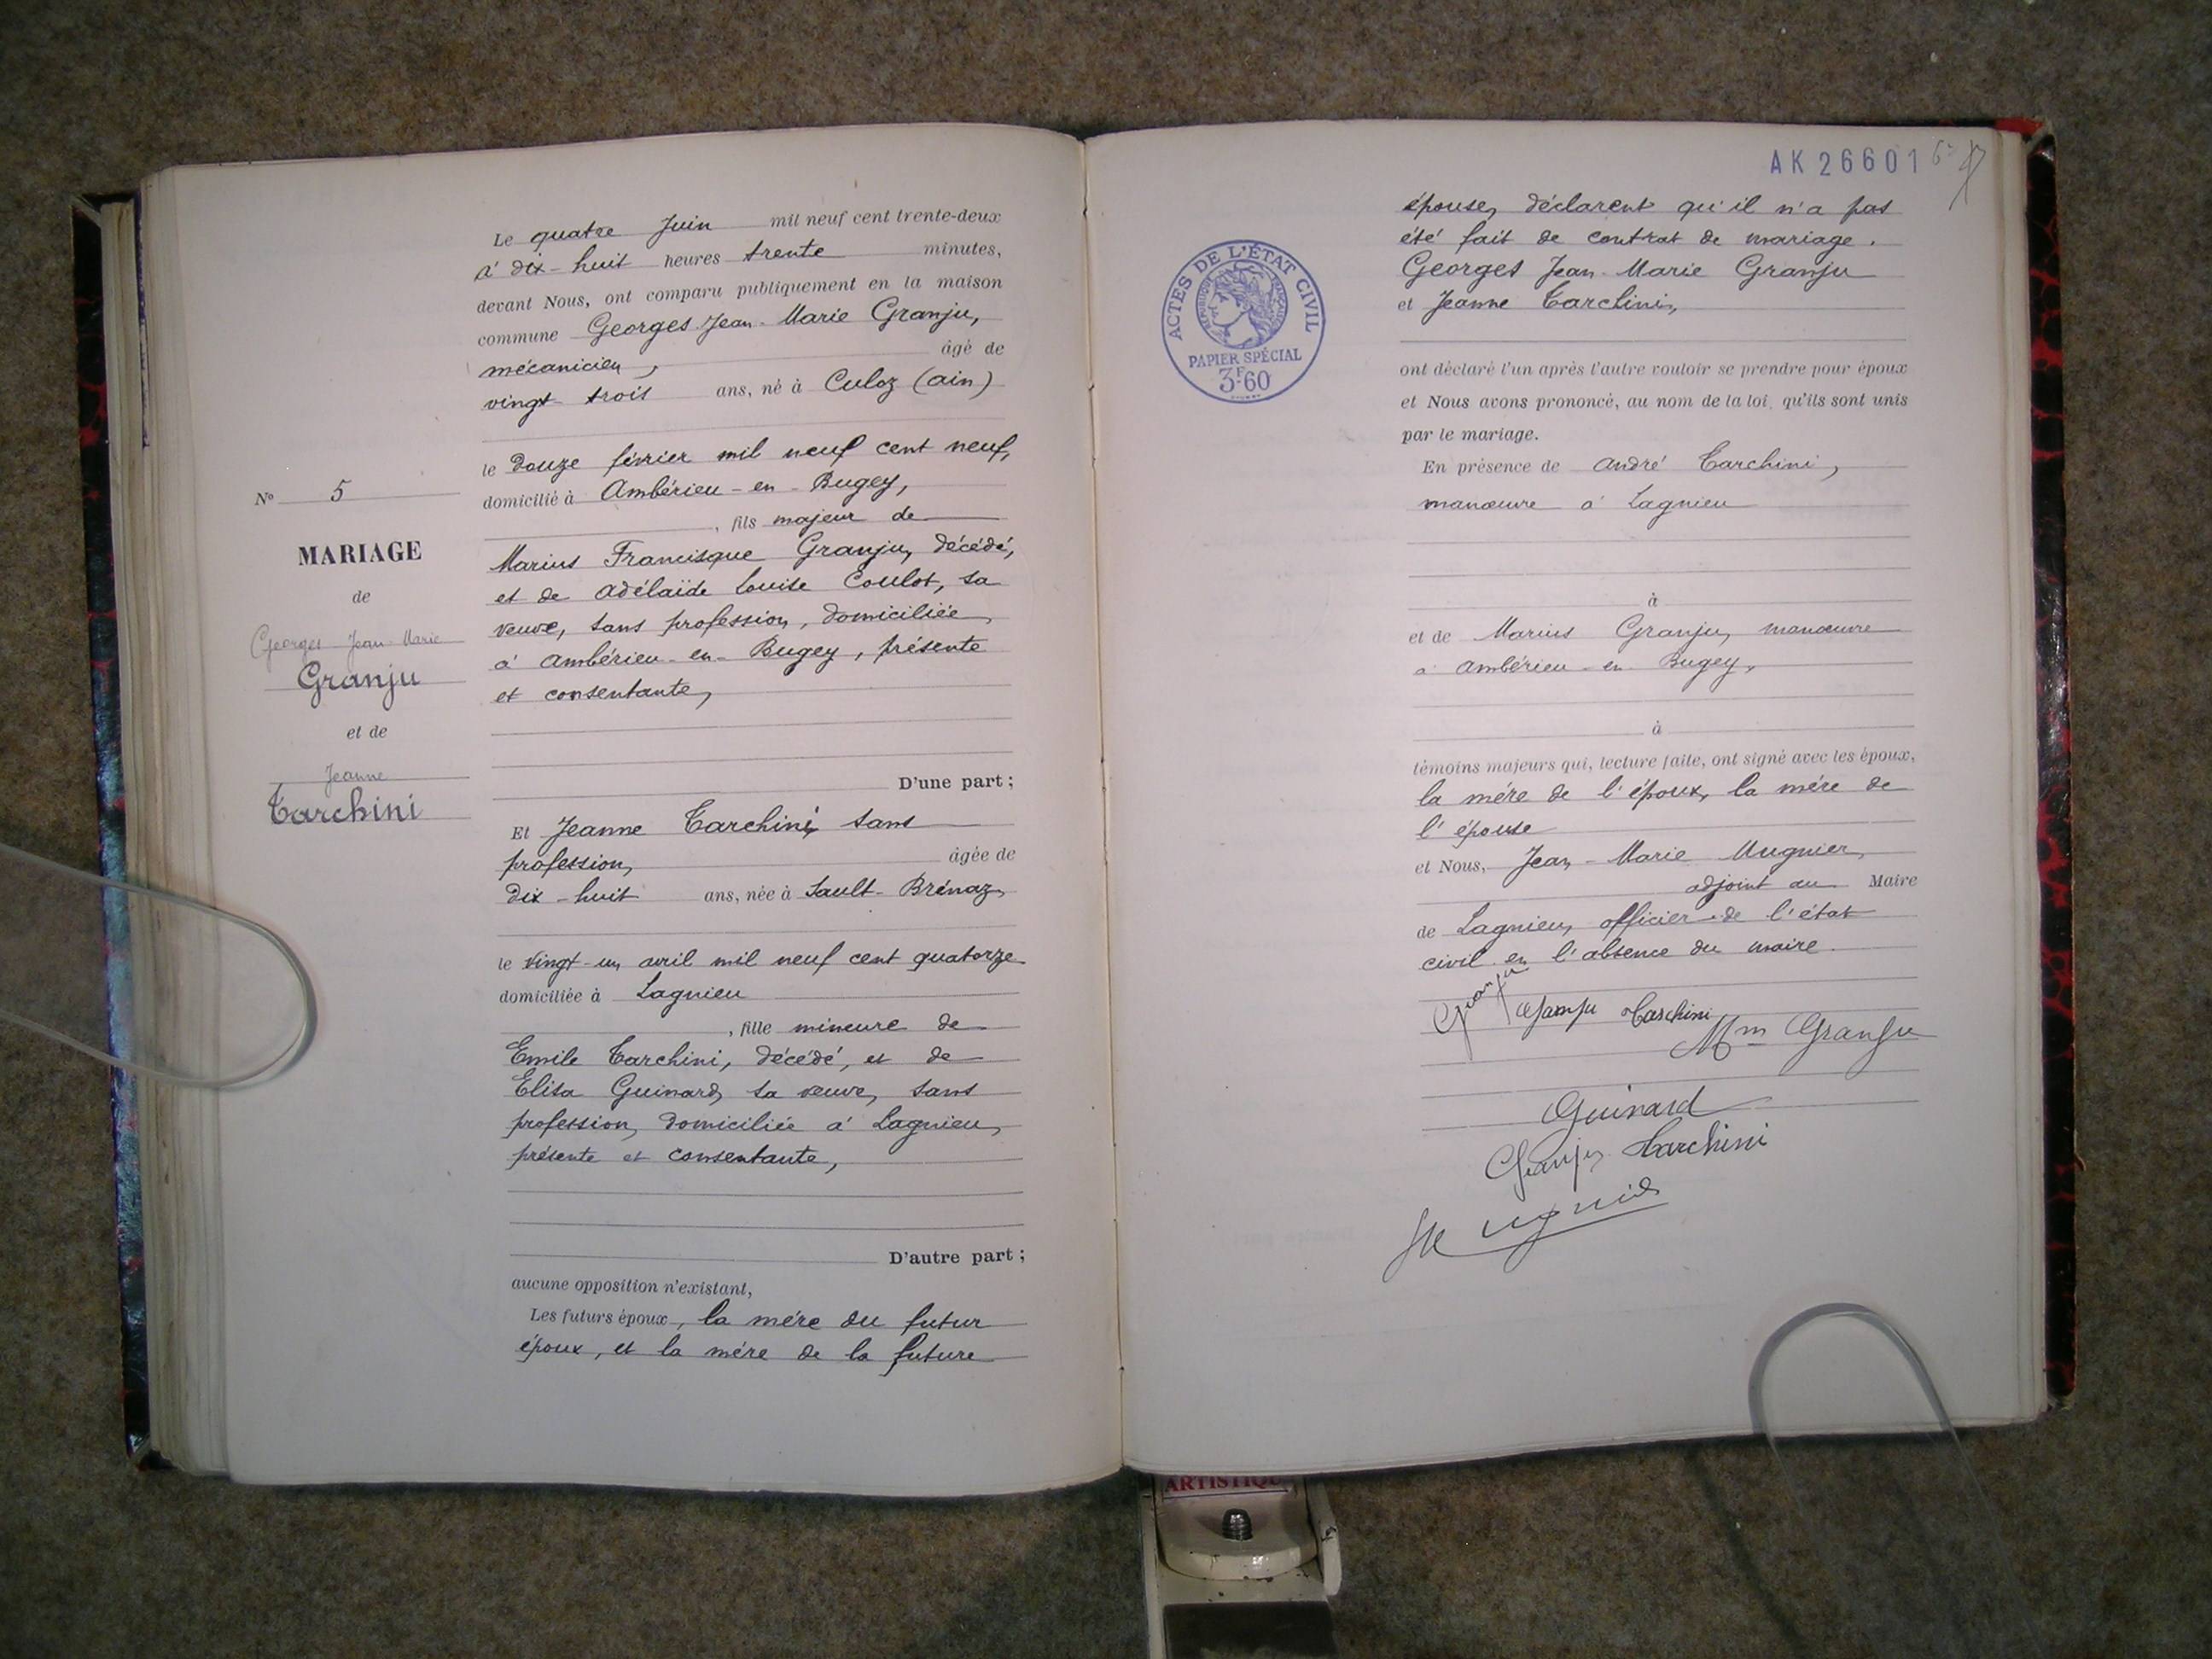 N° 5
MARIAGE
de
Georges Jean-Marie
Granju
et de
Jeanne
Tarchini
Le quatre Juin mil neuf cent trente-deux
à dix-huit heures trente minutes,
devant Nous, ont comparu publiquement en la maison
commune Georges Jean-Marie Granju,
mécanicien, âgé de
vingt-trois ans, né à Culoz (ain)
le douze février mil neuf cent neuf,
domicilié à Ambérieu-en-Bugey,
, fils majeur de
Marius Francisque Granju, décédé,
et de Adélaïde Louise Coulot, sa
veuve, sans profession, domiciliée
à Ambérieu-en-Bugey, présente
et consentante,
D'une part ;
Et Jeanne Tarchini, sans
profession, âgée de
dix-huit ans, née à Sault-Brénaz,
le vingt-un avril mil neuf cent quatorze
domiciliée à Lagnieu
, fille mineure de
Emile Tarchini, décédé, et de
Elisa Guinard, sa veuve, sans
profession, domiciliée à Lagnieu,
présente et consentante,
D'autre part ;
aucune opposition n'existant,
Les futurs époux, la mère du futur
époux, et la mère de la future
AK 26601
ACTES DE L'ÉTAT CIVIL
RÉPUBLIQUE FRANÇAISE
PAPIER SPÉCIAL
3F.60
épouse, déclarent qu'il n'a pas
été fait de contrat de mariage.
Georges Jean-Marie Granju
et Jeanne Tarchini,
ont déclaré l'un après l'autre vouloir se prendre pour époux
et Nous avons prononcé, au nom de la loi, qu'ils sont unis
par le mariage.
En présence de André Tarchini,
manœuvre à Lagnieu
à
et de Marius Granju, manœuvre
à Ambérieu-en-Bugey,
à
témoins majeurs qui, lecture faite, ont signé avec les époux,
la mère de l'époux, la mère de
l'épouse
et Nous, Jean-Marie Mugnier,
adjoint au Maire
de Lagnieu, officier de l'état
civil en l'absence du maire.
Granju Granju Tarchini
Mm Granju
Guinard
Granju Tarchini
Mugnier
ARTISTIQUE